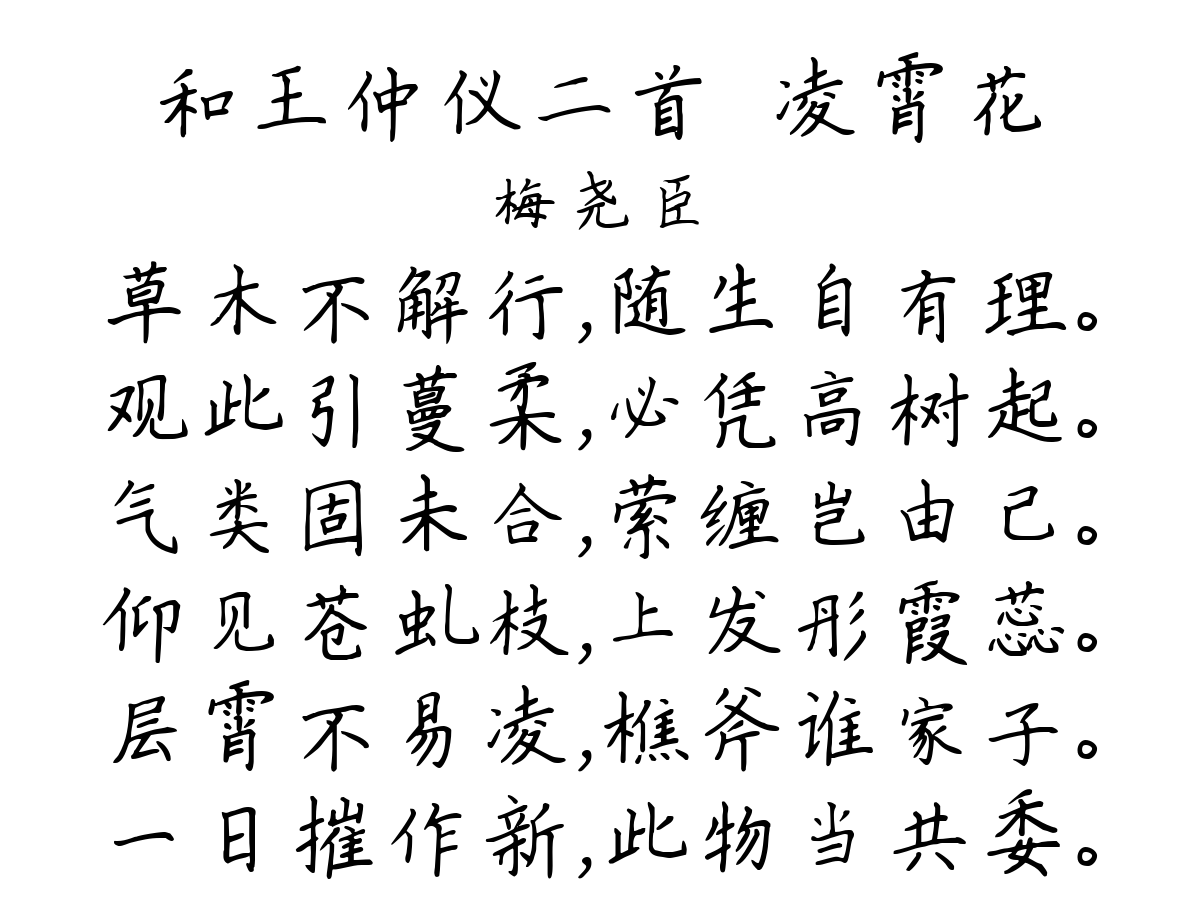 和王仲仪二首 凌霄花
梅尧臣
草木不解行,随生自有理。
观此引蔓柔,必凭高树起。
气类固未合,萦缠岂由己。
仰见苍虬枝,上发彤霞蕊。
层霄不易凌,樵斧谁家子。
一日摧作新,此物当共委。